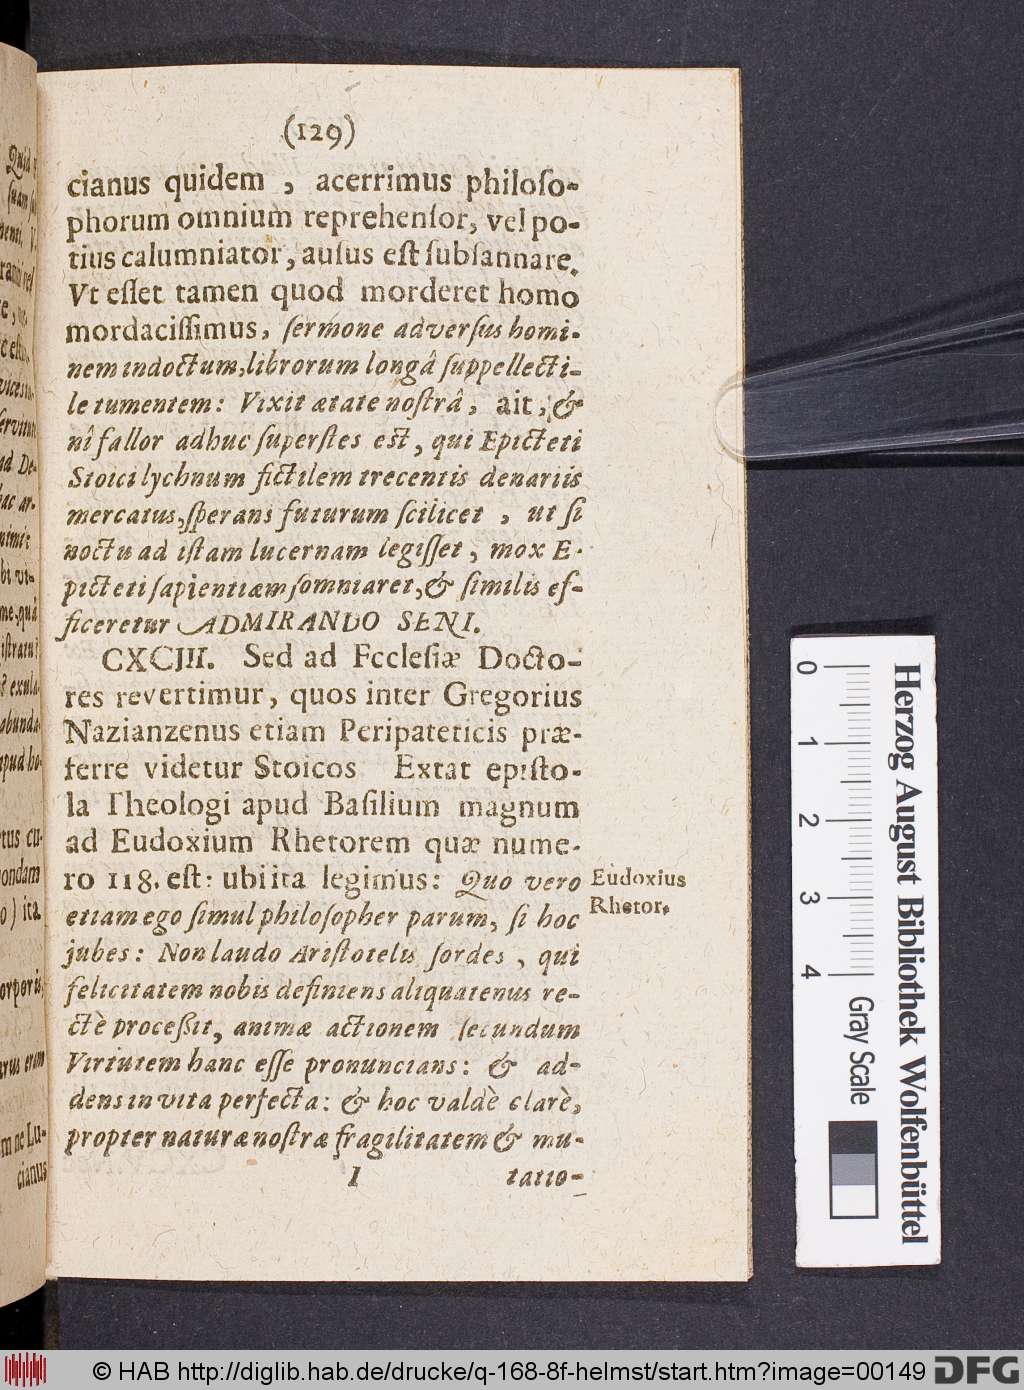 (129)
cianus quidem , acerrimus philoſo-
phorum omnium reprehenſor, vel po-
tius calumniator, auſus eſt ſubſannare.
Vt eſſet tamen quod morderet homo
mordaciſſimus, ſermone adverſus homi-
nem indoctum, librorum longâ ſuppellecti-
le tumentem: Vixit ætate noſtrâ, ait, &
nî fallor adhuc ſuperſtes eſt, qui Epicteti
Stoici lychnum fictilem trecentis denariis
mercatus, ſperans futurum ſcilicet , ut ſi
noctu ad iſtam lucernam legiſſet, mox E-
picteti ſapientiam ſomniaret, & ſimilis ef-
ficeretur ADMIRANDO SENI.
CXCIII. Sed ad Eccleſiæ Docto-
res revertimur, quos inter Gregorius
Nazianzenus etiam Peripateticis præ-
ferre videtur Stoicos Extat epiſto-
la Theologi apud Baſilium magnum
ad Eudoxium Rhetorem quæ nume-
ro 118. eſt: ubi ita legimus: Quo vero
Eudoxius
Rhetor.
etiam ego ſimul philoſopher parum, ſi hoc
jubes: Non laudo Ariſtotelis ſordes , qui
felicitatem nobis definiens aliquatenus re-
ctè proceßit, animæ actionem ſecundum
Virtutem hanc eſſe pronuncians: & ad-
dens in vita perfecta: & hoc valdè clarè,
propter naturæ noſtræ fragilitatem & mu-
I tatio-
Herzog August Bibliothek Wolfenbüttel
0 1 2 3 4
Gray Scale
© HAB http://diglib.hab.de/drucke/q-168-8f-helmst/start.htm?image=00149
DFG